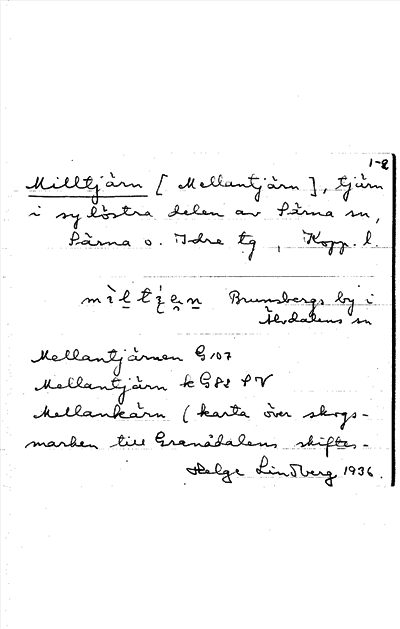 1-2
Milltjärn [Mellantjärn], tjärn
i sydöstra delen av Särna sn,
Särna o. Idre tg, Kopp. l
Brunsbergs by i
Älvdalens sn
Mellantjärnen G 107
Mellantjärn k G 82 S V
Mellankärn (karta över skogs-
marken till Granådalens skiftes-
Helge Lindberg 1936.